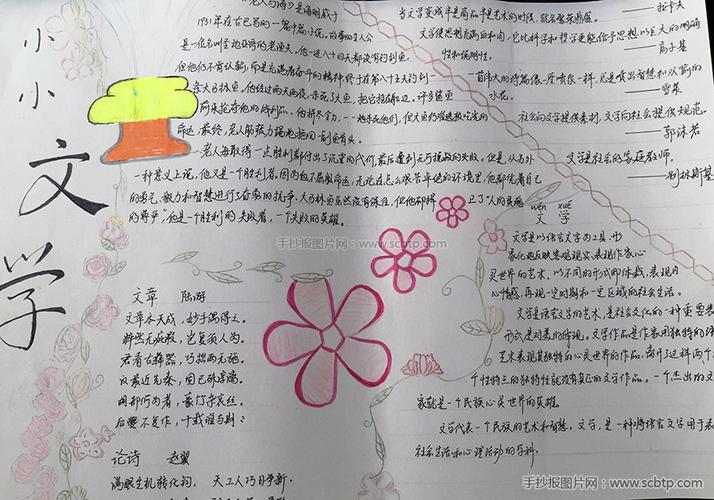 小小文学
《老人与海》是海明威于
1951年在古巴写的一篇中篇小说，故事的主人公
是一名叫圣地亚哥的老渔夫，他一连八十四天都没有钓到鱼，
但他仍不肯认输，而是充满着奋斗的精神，终于在第八十五天钓到一
条大马林鱼，
老人每取得一点胜利都付出了沉重的代价，最后遭到无可挽救的失败。但是，从另外
一种意义上说，他又是一个胜利者。因为他不屈服命运，无论在怎么艰苦卓绝的环境里，他都凭着自己
的勇气、毅力和智慧进行了奋勇的抗争。大马林鱼虽然没有保住，但他却捍卫了“人的灵魂
的尊严”，他是一个胜利的失败者，一个失败的英雄。
当文学变成半是商品半是艺术的时候，就会繁荣鼎盛。
——拉卡夫
性和说服性。
——高尔基
一首伟大的诗篇像一座喷泉一样，总是喷出智慧和欢愉的
水花。
——雪莱
社会向文学提供素材，文学向社会提供规范。
——郭沫若
文学是社会的家庭教师。
——别林斯基
wén xué
文 学
文学是以语言文字为工具，形
象化地反映客观现实、表现作家心
灵世界的艺术，以不同的形式即体裁，表现内
心情感，再现一定时期和一定区域的社会生活。
文学是语言文字的艺术，是社会文化的一种重要表
形式，是对美的体现。文学作品是作家用独特的语
艺术表现其独特的心灵世界的作品，离开了这样两个
个性特点的独特性就没有真正的文学作品。一个杰出的文
家就是一个民族心灵世界的英雄。
文学代表一个民族的艺术和智慧。文学，是一种将语言文字用于表
社会生活和心理活动的学科。
文章 陆游
文章本天成，妙手偶得之。
粹然无疵瑕，岂复须人为。
君看古彝器，巧拙两无施。
汉最近先秦，固已殊淳漓。
胡部何为者，豪竹杂哀丝。
后夔不复作，千载谁与期？
论诗 赵翼
满眼生机转化钧，天工人巧日争新。
手抄报图片网：www.scbtp.com
手抄报图片网：www.scbtp.com